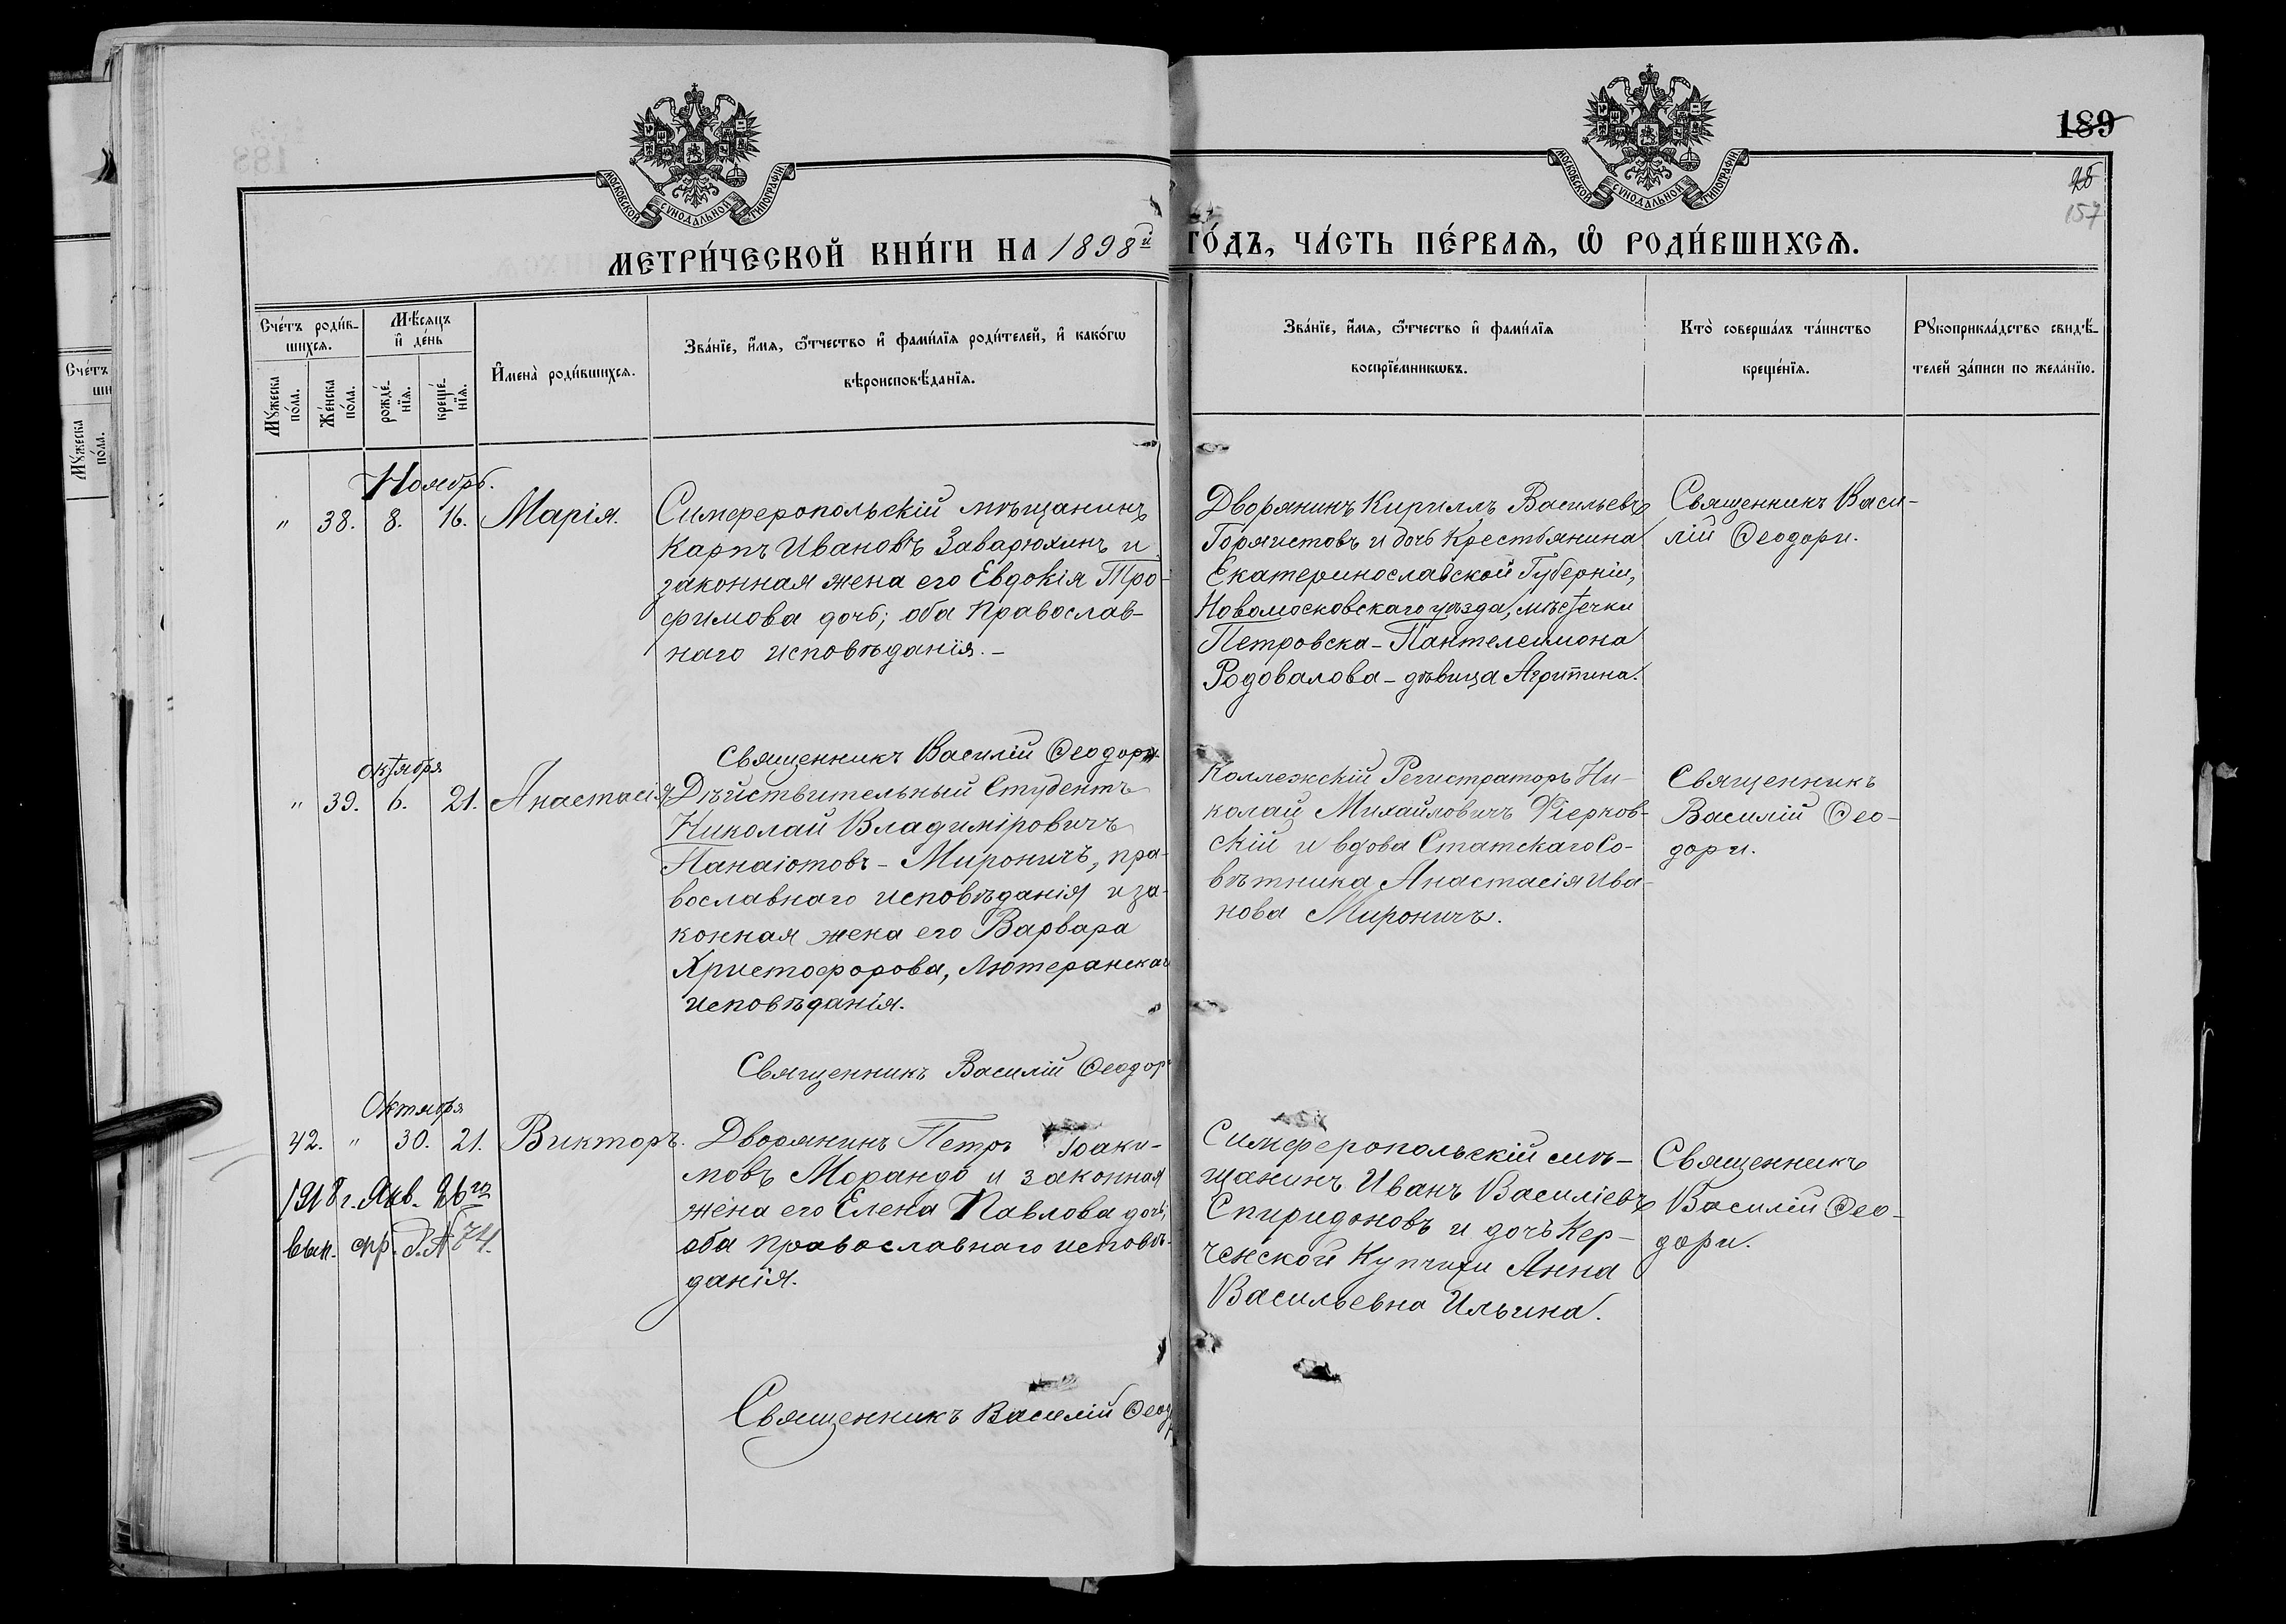 189
28
157
МОСКОВСКОЙ СѴНОДАЛЬНОЙ ТИПОГРАФІИ
МОСКОВСКОЙ СѴНОДАЛЬНОЙ ТИПОГРАФІИ
МЕТРИ́ЧЕСКОЙ КНИ́ГИ НА 1898й ГО́ДЪ, ЧА́СТЬ ПЕ́РВАѦ, Ѡ РОДИ́ВШИХСѦ.
Сче́тъ роди́в-
шихсѧ.
Мꙋ́жеска по́ла.
Же́нска по́ла.
Мѣ́сѧцъ и҆ де́нь
рожде́-нїѧ.
креще́-нїѧ.
И҆мена̀ роди́вшихсѧ.
Зва́нїе, и҆́мѧ, ѻ҆́тчество и҆ фами́лїѧ роди́телей, и҆ како́гѡ
вѣроисповѣ́данїѧ.
Зва́нїе, и҆́мѧ, ѻ҆́тчество и҆ фами́лїѧ
воспрїе́мникѡвъ.
Кто̀ соверша́лъ та́инство
креще́нїѧ.
Рꙋкоприкла́дство свидѣ́-
телей за́писи по жела́нїю.
Ноябрь.
" 38. 8. 16. Марія.
Симферопольскій мѣщанинъ
Карпъ Ивановъ Заварюхинъ и
законная жена его Евдокія Тро-
фимова дочь; оба Православ-
наго исповѣданія.-
Священникъ Василій Ѳеодори
Дворянинъ Кириллъ Васильевъ
Горяистовъ и дочь Крестьянина
Екатеринославской Губерніи,
Новомосковскаго уѣзда, мѣстечки
Петровска-Пантелеимона
Родовалова-дѣвица Агрипина.
Священникъ Васи-
лій Ѳеодори.
Октября
" 39. 6. 21. Анастасія
Дѣйствительный Студентъ
Николай Владиміровичъ
Панаіотовъ-Мироничъ, пра-
вославнаго исповѣданія и за-
конная жена его Варвара
Христофорова, Лютеранска
исповѣданія.
Священникъ Василій Ѳеодор
Коллежскій Регистраторъ Ни-
колай Михайловичъ Фіерков-
скій и вдова Статскаго Со-
вѣтника Анастасія Ива-
нова Мироничъ.
Священникъ
Василій Ѳео-
дори.
Октября
42. " 30. 21. Викторъ.
1918 г. Янв. 26го
вып. спр. З. № 74.
Дворянинъ Петръ Іоаки-
мовъ Морандо и законная
жена его Елена Павлова дочь,
оба православнаго исповѣ-
данія.
Священникъ Василій Ѳеод
Симферопольскій мѣ-
щанинъ Иванъ Василіевъ
Спиридоновъ и дочь Кер-
ченской Купчихи Анна
Васильевна Ильина.
Священникъ
Василій Ѳео-
дори.
Сче́тъ
ши
Мꙋ́жеска по́ла.